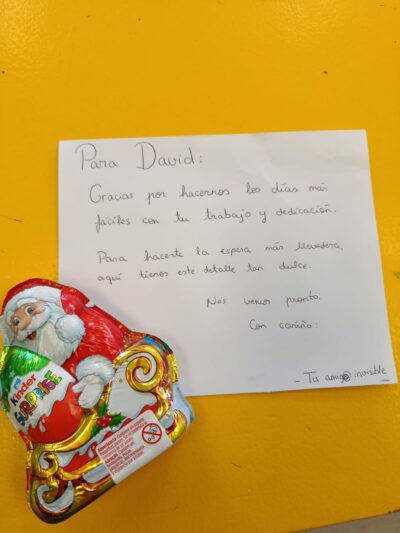 Para David:
Gracias por hacernos los días más
fáciles con tu trabajo y dedicación.
Para hacerte la espera más llevadera,
aquí tienes este detalle tan dulce.
Nos vemos pronto.
Con cariño:
- Tu amig@ invisible -
Kinder
SURPRISE